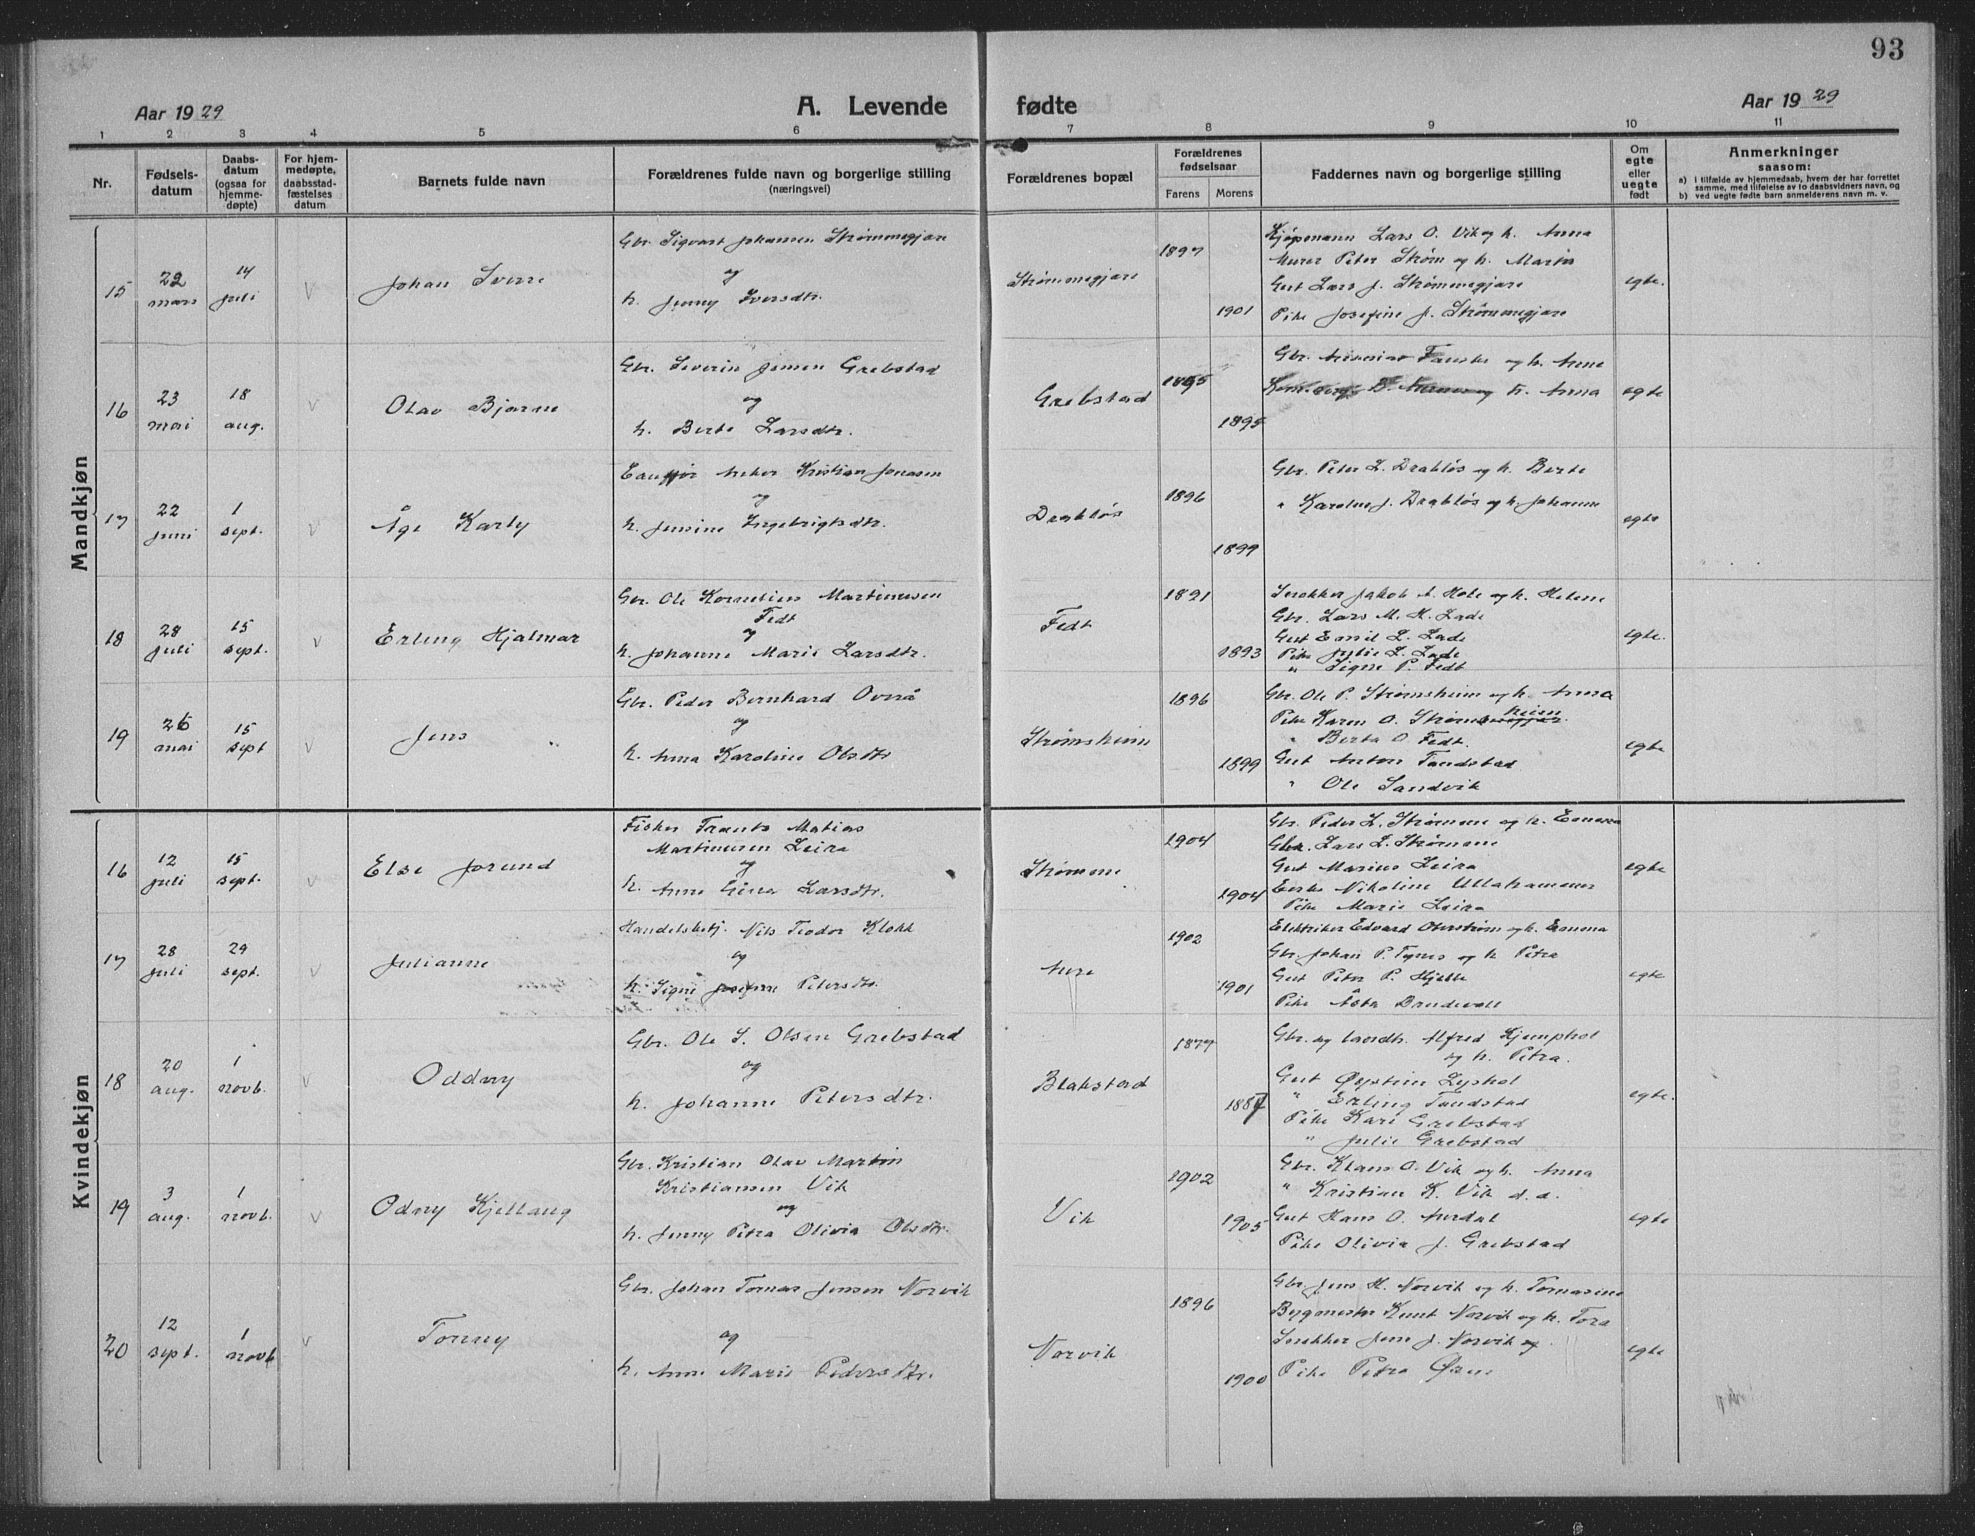 93
Aar 1929
A. Levende fødte
Aar 1929
1 2 3 4 5 6 7 8 9 10 11
Nr.
Fødsels-
datum
Daabs-
datum
(ogsaa for
hjemme-
døpte)
For hjem-
medøpte,
daabsstad-
fæstelses
datum
Barnets fulde navn
Forældrenes fulde navn og borgerlige stilling
(næringsvei)
Forældrenes bopæl
Forældrenes
fødselsaar
Farens Morens
Faddernes navn og borgerlige stilling
Om
egte
eller
uegte
født
Anmerkninger
saasom:
a) i tilfælde av hjemmedaab, hvem der har forrettet
samme, med tilføielse av to daabsvidners navn, og
b) ved uegte fødte barn anmelderens navn m. v.
Mandkjøn
15
22
mars
14
juli
V
Johan Sverre
Gbr. Sigvart Johansen Strømmegjære
og
h. Jenny Iversdtr.
Strømmegjære
1897
1901
Kjøpmann Lars O. Vik og h. Anna
Murer Peter Strøm og h. Marta
Gut Lars J. Strømmegjære
Pike Josefine J. Strømmegjære
egte.
16
23
mai
18
aug.
V
Olav Bjarne
Gbr. Severin Jensen Grebstad
og
h. Berte Larsdtr.
Grebstad
1895
1895
Gbr. Fauske og h. Anne
h. Anna
egte
17
22
juni
1
sept.
V
Åge Karly
Anker Kristian Jonasen
og
h. Jensine Ingebrigtsdtr.
Drabløs
1896
1899
Gbr. Peter L. Drabløs og h. Berte
" Karolus J. Drabløs og h. Johanne
egte
18
28
juli
15
sept.
V
Erling Hjalmar
Gbr. Ole Kornelius Martinusen
Fedt
og
h. Johanne Marie Larsdtr.
Fedt
1891
1893
Snekker Jakob A. Hole og h. Helene
Gbr. Lars M. H. Lade
Gut Emil L. Lade
Pike Julie L. Lade
" Signe P. Fedt
egte.
19
26
mai
15
sept
V
Jens
Gbr. Peder Bernhard Overå
og
h. Anna Karoline Olsdtr
Strømsheim
1896
1899
Gbr. Ole P. Strømsheim og h. Anna
Pike Karen O. Strømsheim
" Berta O. Fedt.
Gut Anton Tandstad
" Ole Sandvik
egte
Kvindekjøn
16
12
juli
15
sept.
V
Else Jorund
Fisker Frants Matias
Martinusen Leira
og
h. Anne Gina Larsdtr.
Strømme
1904
1904
Gbr. Peder L. Strømme og h. Emma
Gbr. Lars L. Strømme
Gut Marius Leira
Enke Nikoline Ullahammer
Pike Marie Leira
egte
17
28
juli
29
sept.
V
Julianne
Handelsbetj. Nils Teodor Klokk
og
h. Signe Josefine Petersdtr.
Aure
1902
1901
Elektriker Edvard Oterstrøm og h. Emma
Gbr. Johan P. Tynes og h. Petra
Gut Peter P. Hjelle
Pike Åsta Brudevoll
egte
18
20
aug.
1
novb.
V
Oddny
Gbr. Ole S. Olsen Grebstad
og
h. Johanne Petersdtr.
Blakstad
1877
1887
Gbr. og landh. Alfred Kjemphol
og h. Petra.
Gut Øystein Lyshol
" Erling Tandstad
Pike Kari Grebstad
" Julie Grebstad
egte.
19
3
aug.
1
novb.
V
Odny Kjellaug
Gbr. Kristian Olav Martin
Kristiansen Vik
og
h. Jenny Petra Olivia Olsdtr.
Vik
1902
1905
Gbr. Klaus O. Vik og h. Anna
" Kristian K. Vik d. a.
Gut Hans O. Aurdal
Pike Olivia J. Grebstad
egte
20
12
sept.
1
novb
V
Tonny
Gbr. Johan Tomas Jensen Norvik
og
h. Anne Marie Pedersdtr.
Norvik
1896
1900
Gbr. Jens H. Norvik og h. Tomasine
Bygmester Knut Norvik og h. Tora
Snekker Jens J. Norvik og
Pike Petra
egte